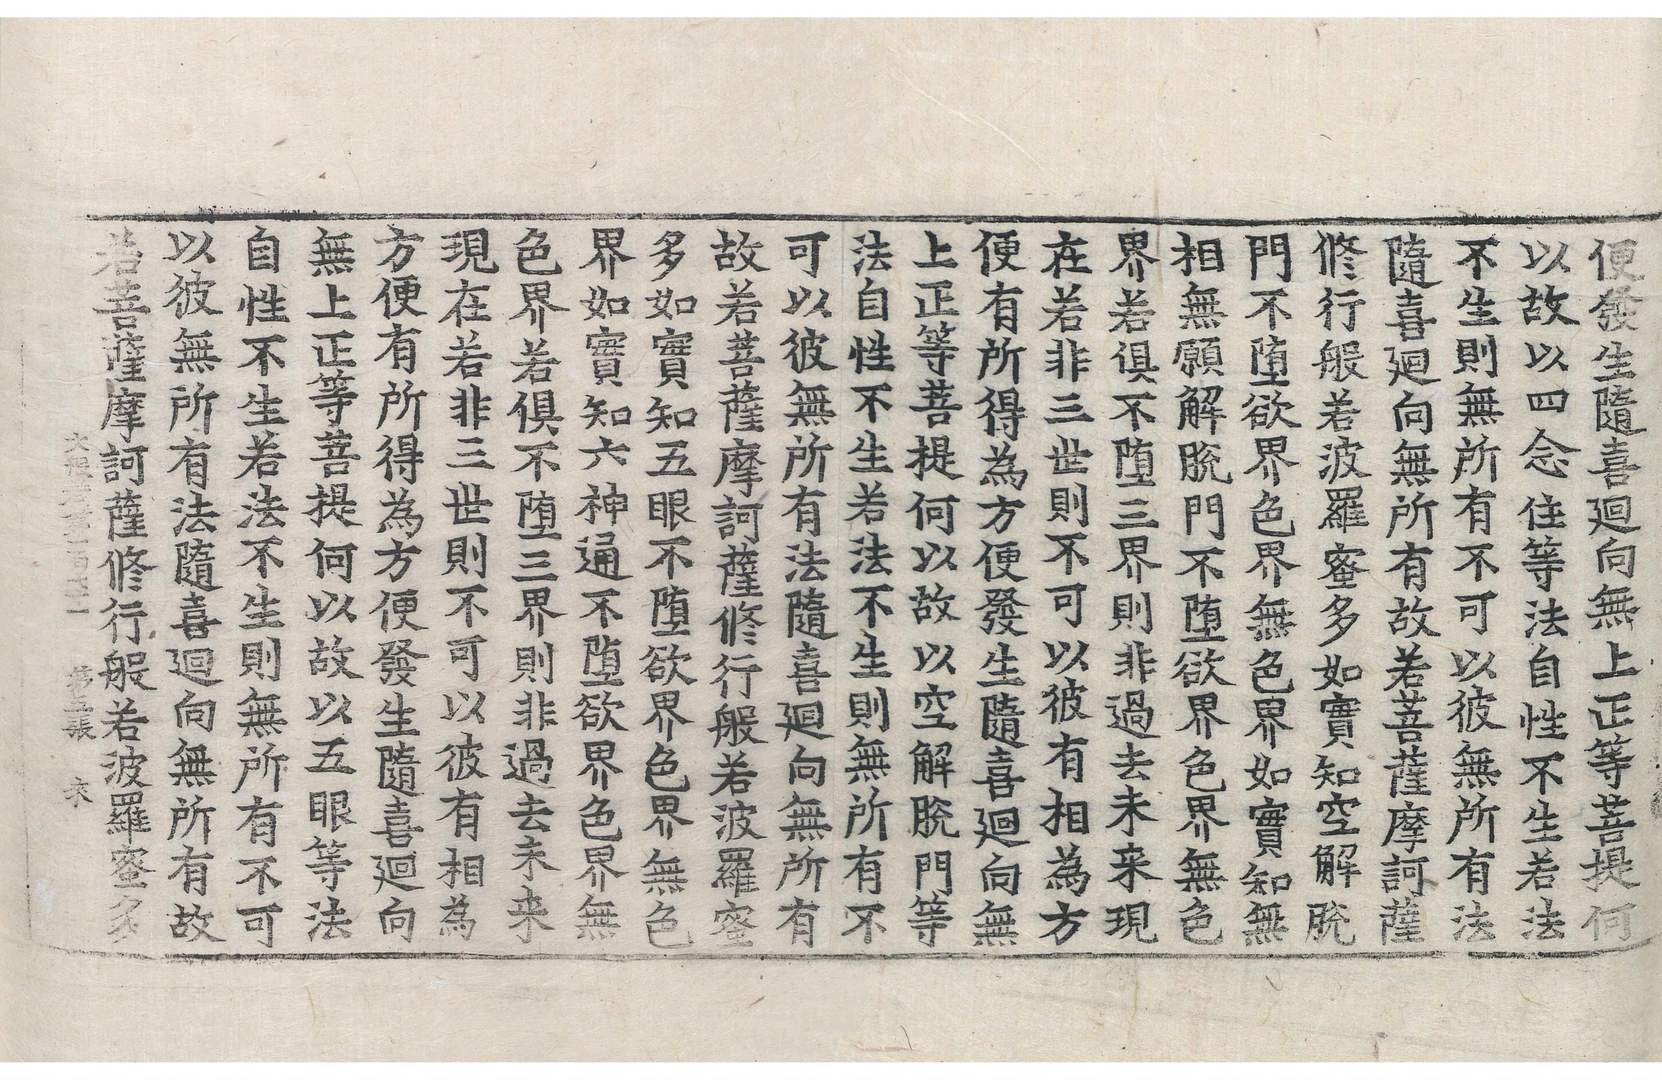 便發生隨喜廻向無上正等菩提何
以故以四念住等法自性不生若法
不生則無所有不可以彼無所有法
隨喜廻向無所有故若菩薩摩訶薩
修行般若波羅蜜多如實知空解脫
門不墮欲界色界無色界如實知無
相無願解脫門不墮欲界色界無色
界若俱不墮三界則非過去未来現
在若非三世則不可以彼有相為方
便有所得為方便發生隨喜廻向無
上正等菩提何以故以空解脫門等
法自性不生若法不生則無所有不
可以彼無所有法隨喜廻向無所有
故若菩薩摩訶薩修行般若波羅蜜
多如實知五眼不墮欲界色界無色
界如實知六神通不墮欲界色界無
色界若俱不墮三界則非過去未来
現在若非三世則不可以彼有相為
方便有所得為方便發生隨喜廻向
無上正等菩提何以故以五眼等法
自性不生若法不生則無所有不可
以彼無所有法隨喜廻向無所有故
若菩薩摩訶薩修行般若波羅蜜多
第五張